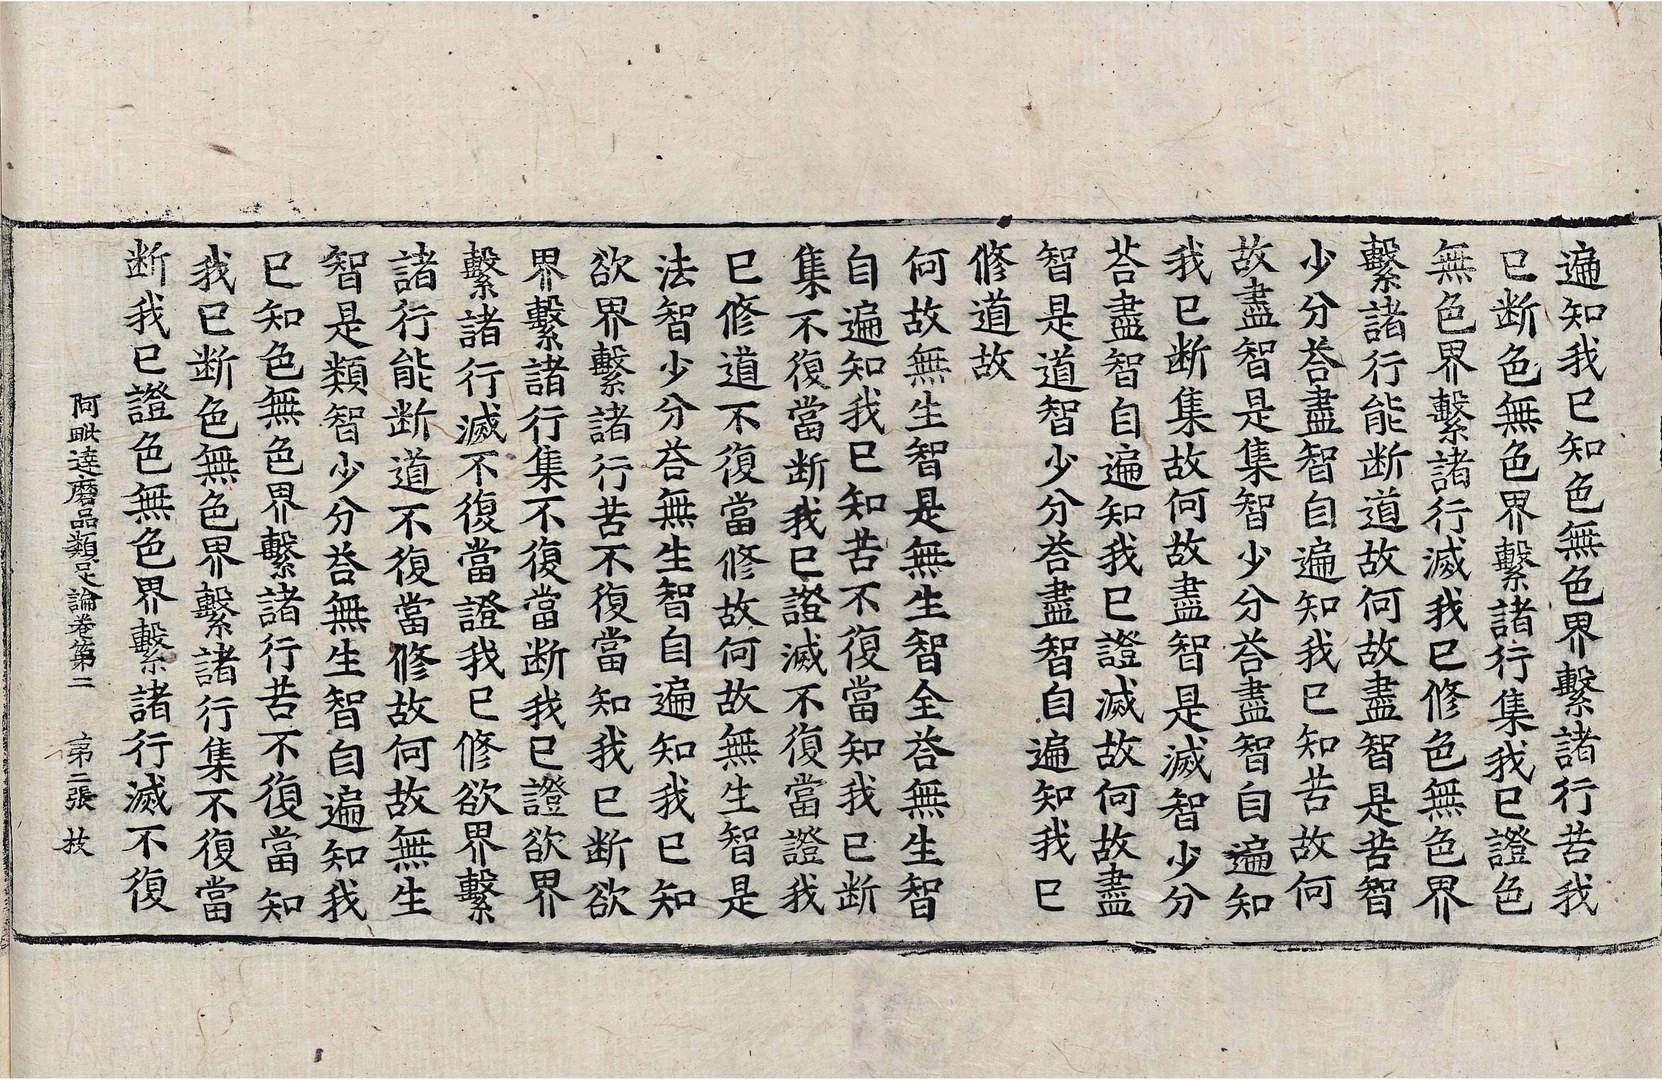 遍知我已知色無色界繫諸行苦我
已断色無色界繫諸行集我已證色
無色界繫諸行滅我已修色無色界
繫諸行能断道故何故盡智是苦智
少分荅盡智自遍知我已知苦故何
故盡智是集智少分荅盡智自遍知
我已断集故何故盡智是滅智少分
荅盡智自遍知我已證滅故何故盡
智是道智少分荅盡智自遍知我已
修道故
何故無生智是無生智全荅無生智
自遍知我已知苦不復當知我已断
集不復當断我已證滅不復當證我
已修道不復當修故何故無生智是
法智少分荅無生智自遍知我已知
欲界繫諸行苦不復當知我已断欲
界繫諸行集不復當断我已證欲界
繫諸行滅不復當證我已修欲界繫
諸行能断道不復當修故何故無生
智是類智少分荅無生智自遍知我
已知色無色界繫諸行苦不復當知
我已断色無色界繫諸行集不復當
断我已證色無色界繫諸行滅不復
阿毗達磨品類足論卷第二 第二張 枝